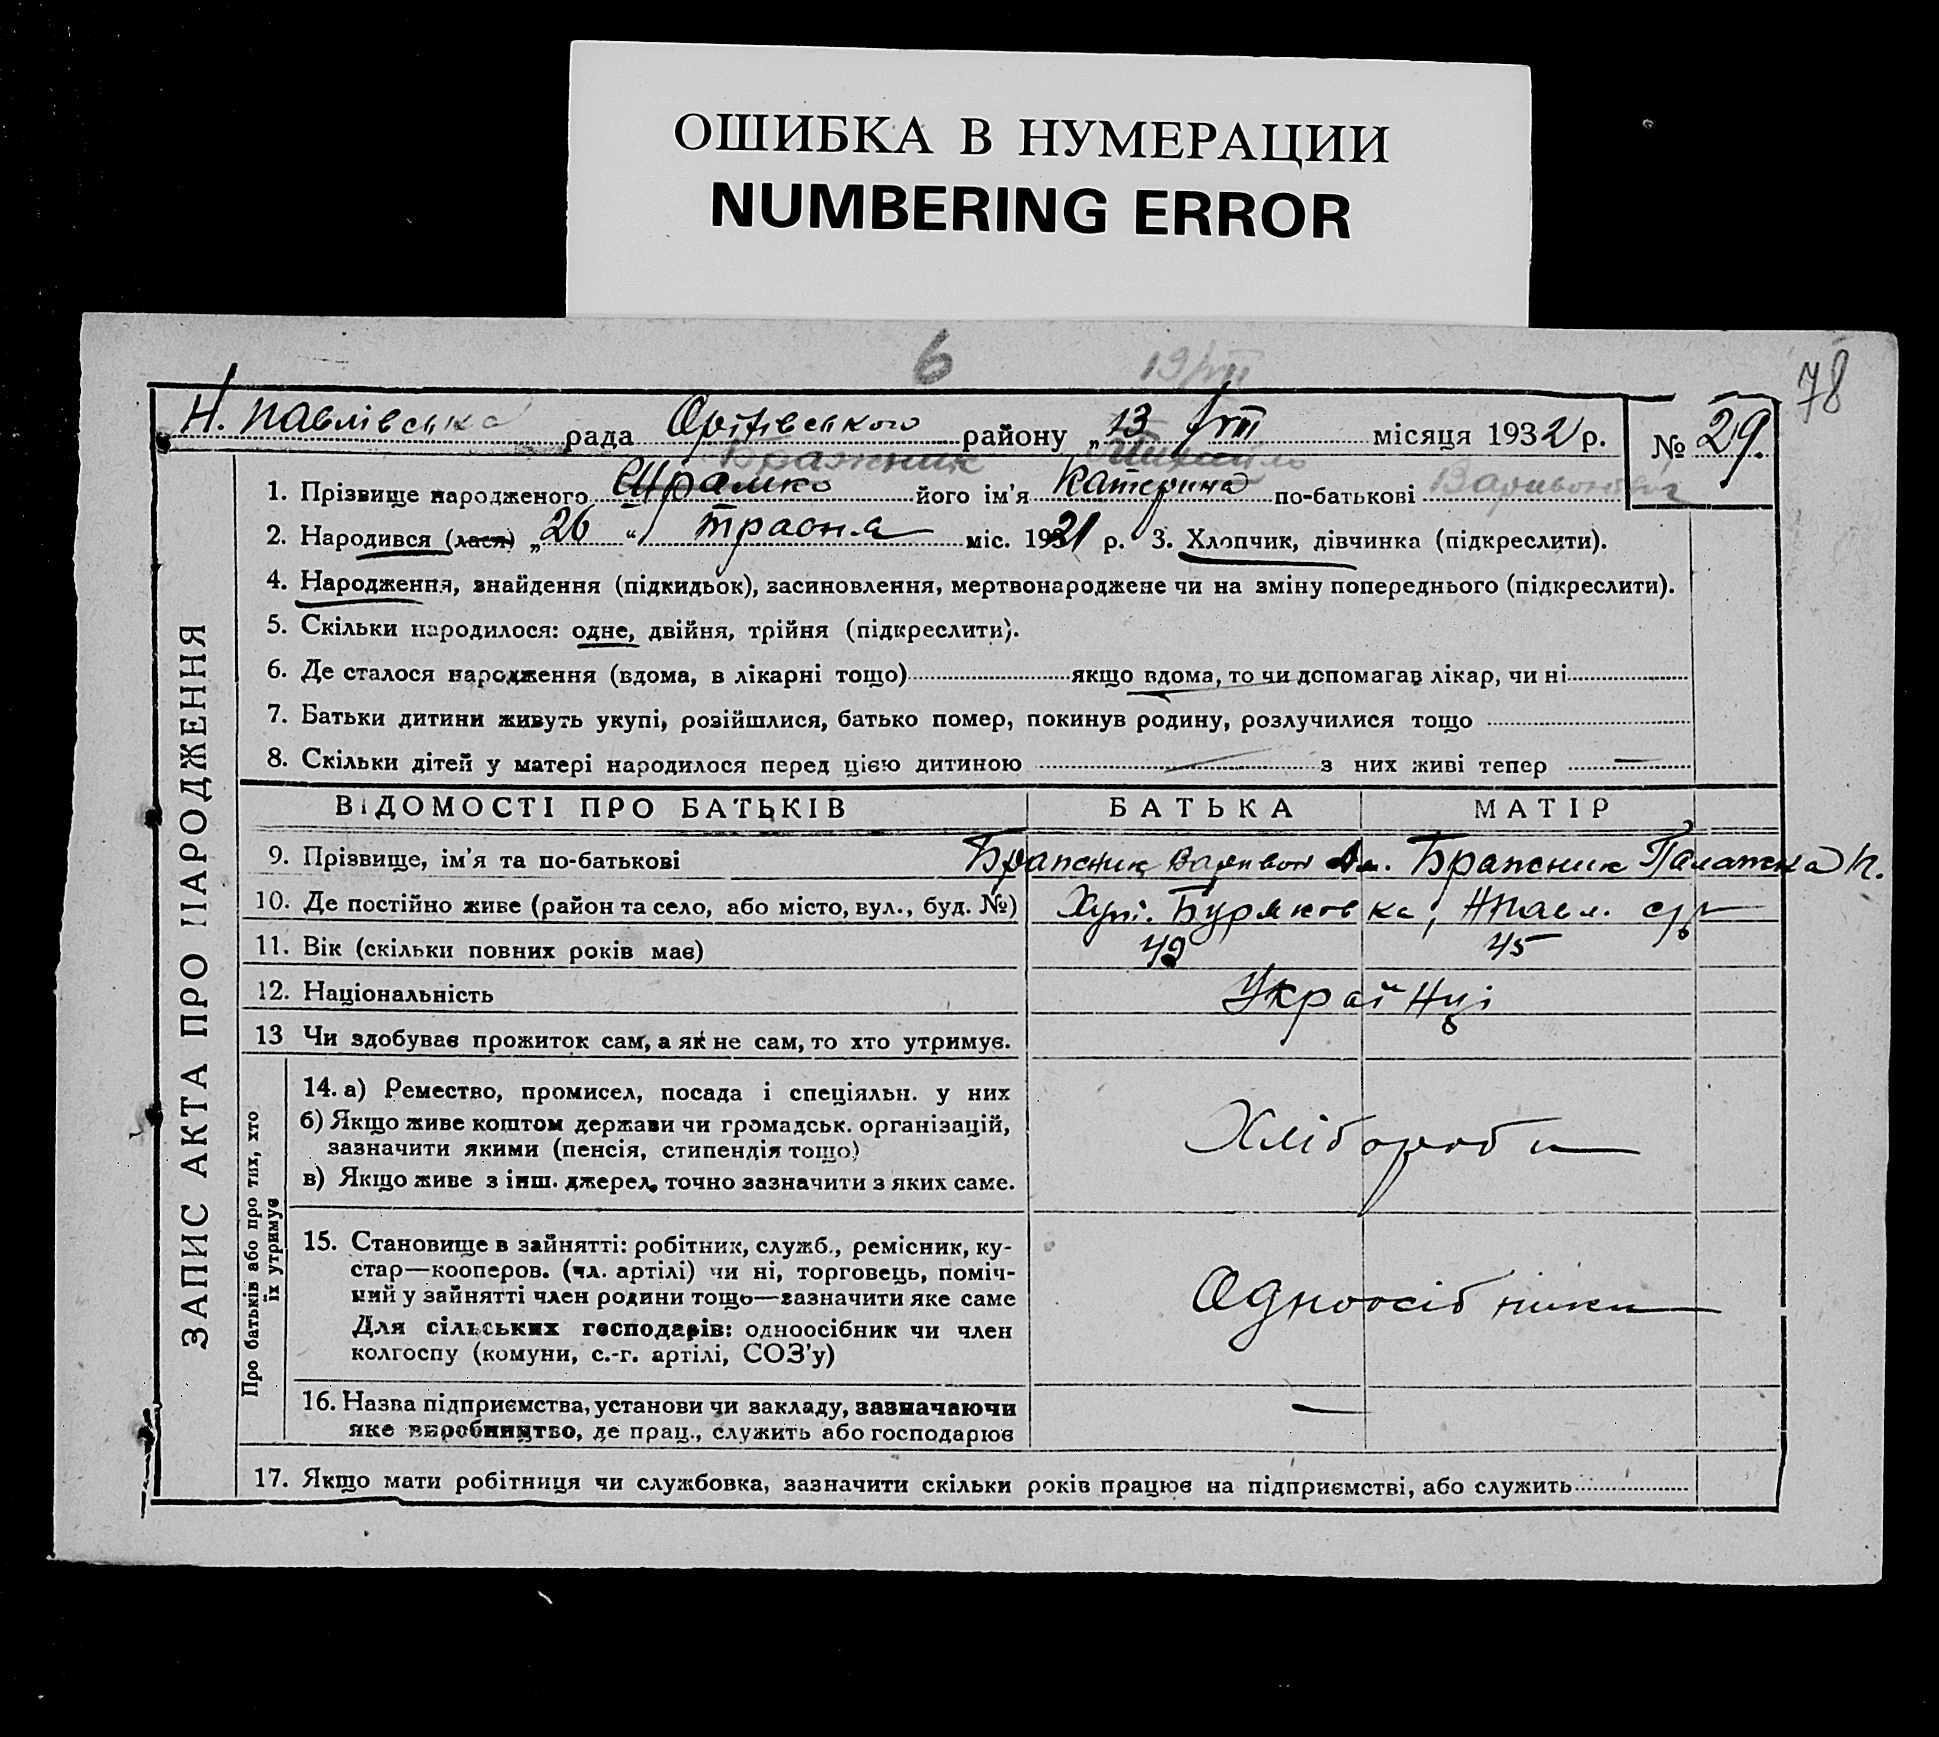 ОШИБКА В НУМЕРАЦИИ
NUMBERING ERROR
6
19/VII
78
Н. Павлівська рада Оріхівського району „ 13 / VII місяця 1932 р. № 29.
Бражник Михайло
1. Прізвище народженого Шрамко його ім'я Катерина по-батькові
2. Народився (лася) „ 26 “ Траоня міс. 1921 р. 3. Хлопчик, дівчинка (підкреслити).
4. Народження, знайдення (підкидьок), засиновлення, мертвонароджене чи на зміну попереднього (підкреслити).
5. Скільки народилося: одне, двійня, трійня (підкреслити).
6. Де сталося народження (вдома, в лікарні тощо) якщо вдома, то чи допомагав лікар, чи ні
7. Батьки дитини живуть укупі, розійшлися, батько помер, покинув родину, розлучилися тощо
8. Скільки дітей у матері народилося перед цією дитиною — з них живі тепер —
ВІДОМОСТІ ПРО БАТЬКІВ БАТЬКА МАТІР
9. Прізвище, ім'я та по-батькові Бражник Варивон Бражник Палажка
10. Де постійно живе (район та село, або місто, вул., буд. №) Хут. Буряковка, НПавл. с/р
11. Вік (скільки повних років має) 49 45
12. Національність Українці
13 Чи здобуває прожиток сам, а як не сам, то хто утримує.
14. а) Ремество, промисел, посада і спеціяльн. у них
б) Якщо живе коштом держави чи громадськ. організацій,
зазначити якими (пенсія, стипендія тощо)
в) Якщо живе з інш. джерел, точно зазначити з яких саме.
Хлібороби
15. Становище в зайнятті: робітник, служб., ремісник, ку-
стар—кооперов. (чл. артілі) чи ні, торговець, поміч-
ний у зайнятті член родини тощо—зазначити яке саме
Для сільських господарів: одноосібник чи член
колгоспу (комуни, с.-г. артілі, СОЗ'у)
Одноосібники
16. Назва підприємства, установи чи закладу, зазначаючи
яке виробництво, де прац., служить або господарює —
17. Якщо мати робітниця чи службовка, зазначити скільки років працює на підприємстві, або служить
ЗАПИС АКТА ПРО НАРОДЖЕННЯ
Про батьків або про тих, хто
їх утримує